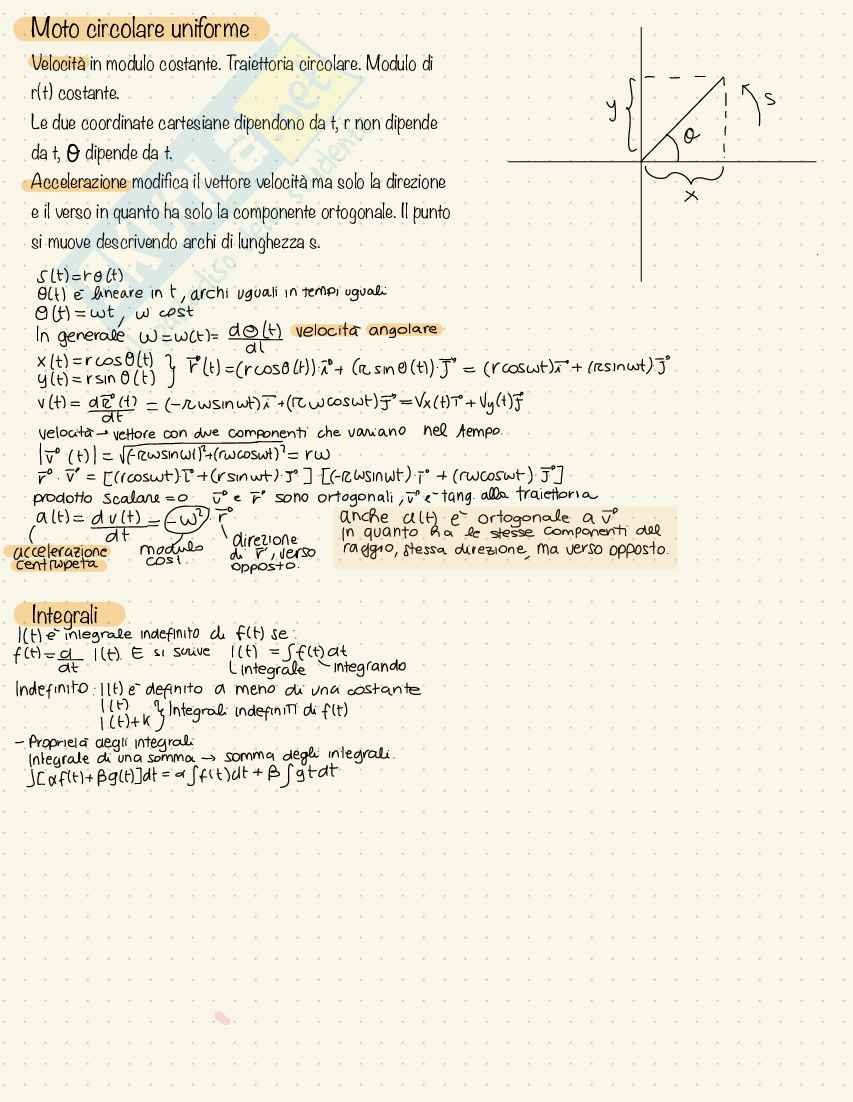 Moto circolare uniforme
Velocità in modulo costante. Traiettoria circolare. Modulo di
r(t) costante.
Le due coordinate cartesiane dipendono da t, r non dipende
da t, θ dipende da t.
Accelerazione modifica il vettore velocità ma solo la direzione
e il verso in quanto ha solo la componente ortogonale. Il punto
si muove descrivendo archi di lunghezza s.
y
θ
s
x
s(t)=rθ(t)
θ(t) è lineare in t, archi uguali in tempi uguali
θ(t)=ωt, ω cost
In generale ω=ω(t)= dθ(t)/dt velocità angolare
x(t)=rcosθ(t)
y(t)=rsinθ(t) } r⃗(t)=(rcosθ(t))·i⃗+(rsinθ(t))·j⃗ = (rcosωt)i⃗+(rsinωt)·j⃗
v(t)= dr⃗(t)/dt = (-rωsinωt)i⃗+(rωcosωt)j⃗=Vx(t)i⃗+Vy(t)j⃗
velocità→vettore con due componenti che variano nel tempo.
|v⃗(t)|=√(-rωsinωt)²+(rωcosωt)²=rω
r⃗·v⃗=[(rcosωt)·i⃗+(rsinωt)·j⃗]·[(-rωsinωt)·i⃗+(rωcosωt)·j⃗]
prodotto scalare=0 v⃗ e r⃗ sono ortogonali, v⃗ è tang. alla traiettoria
a(t)= dv(t)/dt =-ω²·r⃗
accelerazione centripeta
modulo cost.
direzione di r⃗, verso opposto.
anche a(t) è ortogonale a v⃗
in quanto ha le stesse componenti del
raggio, stessa direzione, ma verso opposto.
Integrali
I(t) è integrale indefinito di f(t) se:
f(t)= d/dt I(t). E si scrive I(t) =∫f(t)dt
integrale integrando
Indefinito: I(t) è definito a meno di una costante
I(t)
I(t)+k } Integrali indefiniti di f(t)
- Proprietà degli integrali
Integrale di una somma → somma degli integrali.
∫[αf(t)+βg(t)]dt=α∫f(t)dt+β∫gtdt